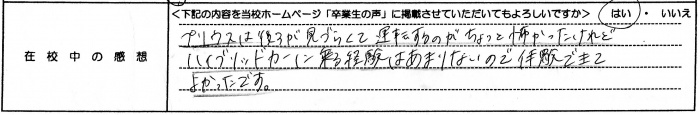 <下記の内容を当校ホームページ「卒業生の声」に掲載させていただいてもよろしいですか> はい ・ いいえ
在校中の感想
プリウスは後ろが見づらくて運転するのがちょっと怖かったけれど
ハイブリッドカーに乗る経験はあまりないので体験できて
よかったです。